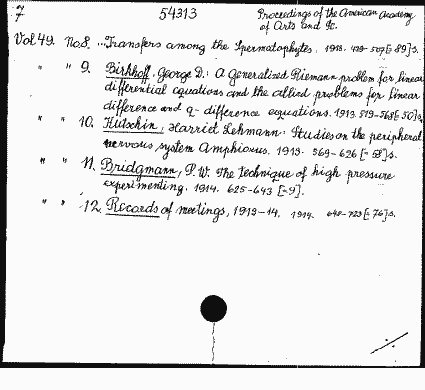 7 54313 Proceedings of the American Academy
of Arts and Sc.
Vol. 49. No 8. ...Transfers among the Spermatophytes. 1913. 429-507 [=89] s.
" " 9. Birkhoff, George D.: A Generalized Riemann problem for linear
differential equations and the allied problems for linear
difference and q-difference equations. 1913. 519-568 [=50] s.
" " 10. Kutschin, Harriet Lehmann: Studies on the peripheral
nervous system Amphioxus. 1913. 569-626 [=58] s.
" " 11. Bridgmann, P. W. The technique of high pressure
experimenting. 1914. 625-643 [=9].
" " 12. Records of meetings, 1913-14. 1914. 648-723 [=76] s.